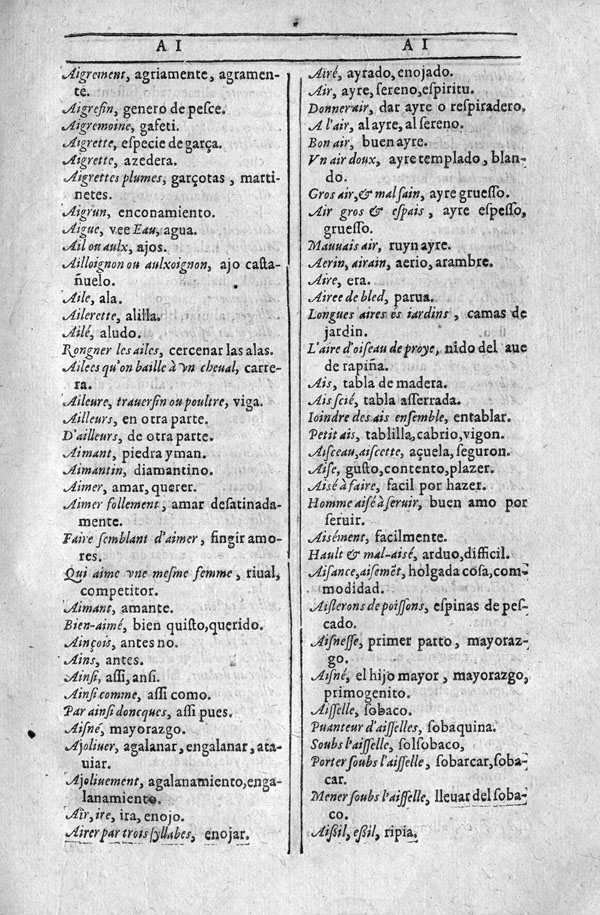 A I
Aigrement, agriamente, agramen-
te.
Aigrefin, genero de pesce.
Aigremoine, gafeti.
Aigrette, eſpecie de garça.
Aigrette, azedera.
Aigrettes plumes, garçotas, marti-
netes.
Aigrun, enconamiento.
Aigue, vee Eau, agua.
Ail ou aulx, ajos.
Ailloignon ou aulxoignon, ajo caſta-
ñuelo.
Aile, ala.
Ailerette, alilla.
Ailé, aludo.
Rongner les ailes, cercenar las alas.
Ailees qu'on baille à vn cheual, carre-
ra.
Aileure, trauerſin ou poultre, viga.
Ailleurs, en otra parte.
D'ailleurs, de otra parte.
Aimant, piedra yman.
Aimantin, diamantino.
Aimer, amar, querer.
Aimer follement, amar deſatinada-
mente.
Faire ſemblant d'aimer, fingir amo-
res.
Qui aime vne meſme femme, riual,
competitor.
Aimant, amante.
Bien-aimé, bien quiſto, querido.
Ainçois, antes no.
Ains, antes.
Ainſi, aſſi, anſi.
Ainſi comme, aſſi como.
Par ainſi doncques, aſſi pues.
Aiſné, mayorazgo.
Ajoliuer, agalanar, engalanar, ata-
uiar.
Ajoliuement, agalanamiento, enga-
lanamiento.
Air, ire, ira, enojo.
Airer par trois ſyllabes, enojar.
A I
Airé, ayrado, enojado.
Air, ayre, ſereno, eſpiritu.
Donner air, dar ayre o reſpiradero,
A l'air, al ayre, al ſereno.
Bon air, buen ayre.
Vn air doux, ayre templado, blan-
do.
Gros air, & mal ſain, ayre grueſſo.
Air gros & eſpais, ayre eſpeſſo,
grueſſo.
Mauuais air, ruyn ayre.
Aerin, airain, aerio, arambre.
Aire, era.
Airee de bled, parua.
Longues aires es iardins, camas de
jardin.
L'aire d'oiſeau de proye, nido del aue
de rapiña.
Ais, tabla de madera.
Ais ſcié, tabla aſſerrada.
Ioindre des ais enſemble, entablar.
Petit ais, tablilla, cabrio, vigon.
Aiſceau, aiſcette, açuela, ſeguron.
Aiſe, guſto, contento, plazer.
Aisé à faire, facil por hazer.
Homme aiſé à ſeruir, buen amo por
ſeruir.
Aisément, facilmente.
Hault & mal-aisé, arduo, difficil.
Aiſance, aiſemẽt, holgada coſa, com-
modidad.
Aiſterons de poiſſons, eſpinas de peſ-
cado.
Aiſneſſe, primer parto, mayoraz-
go.
Aiſné, el hijo mayor, mayorazgo,
primogenito.
Aiſſelle, ſobaco.
Puanteur d'aiſſelles, ſobaquina.
Soubs l'aiſſelle, ſolſobaco,
Porter ſoubs l'aiſſelle, ſobarcar, ſoba-
car.
Mener ſoubs l'aiſſelle, lleuar del ſoba-
co.
Aißil, eßil, ripia.